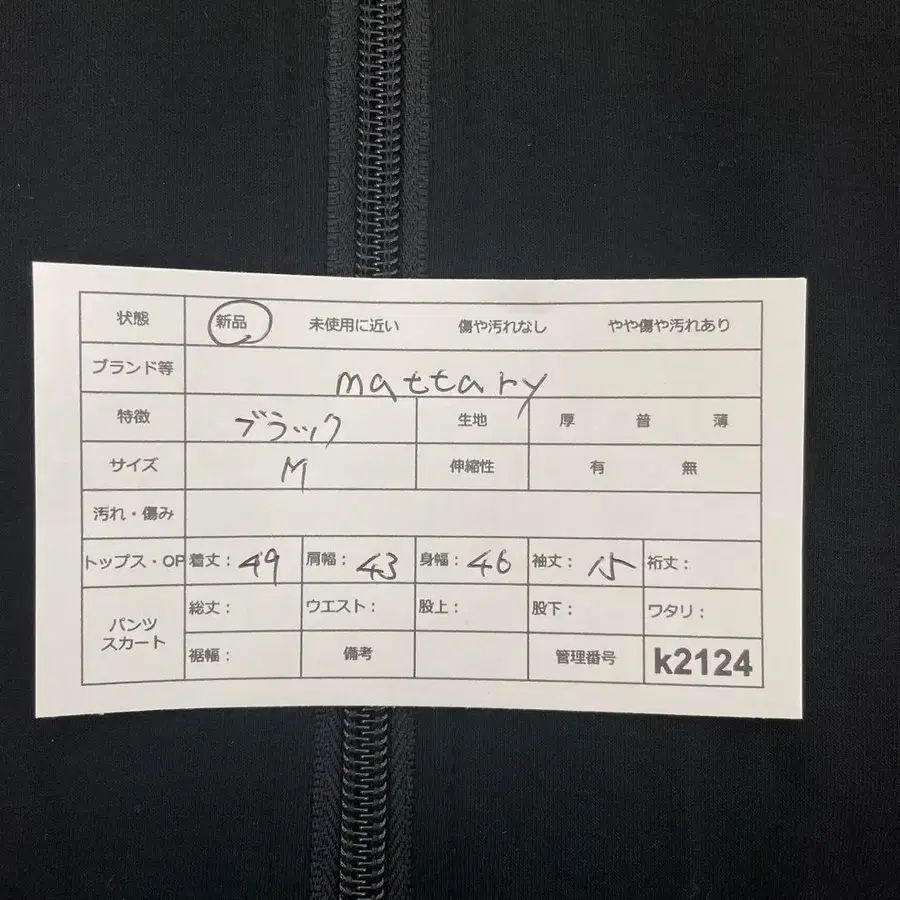 状態 新品 未使用に近い 傷や汚れなし やや傷や汚れあり
ブランド等 mattary
特徴 ブラック 生地 厚 普 薄
サイズ M 伸縮性 有 無
汚れ・傷み
トップス・OP 着丈: 49 肩幅: 43 身幅: 46 袖丈: 15 裄丈:
パンツ スカート
総丈: ウエスト: 股上: 股下: ワタリ:
裾幅: 備考 管理番号 k2124